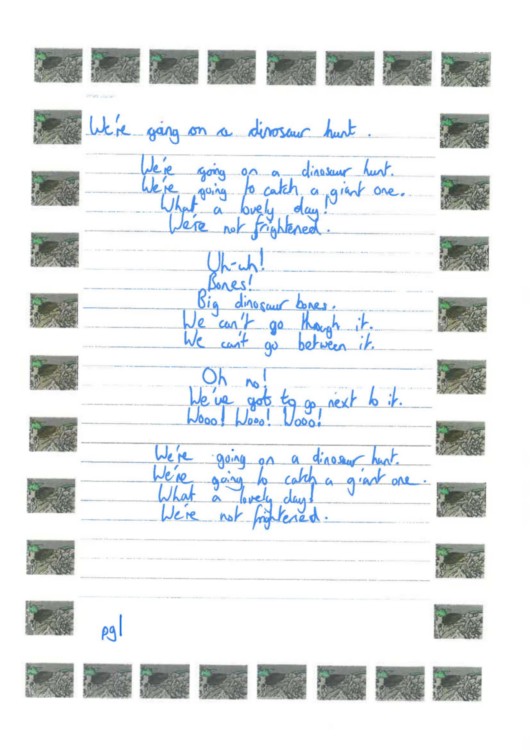 We're going on a dinosaur hunt.
We're going on a dinosaur hunt.
We're going to catch a giant one.
What a lovely day!
We're not frightened.
Uh-uh!
Bones!
Big dinosaur bones.
We can't go though it.
We can't go between it.
Oh no!
We've gots to go next to it.
Wooo! Wooo! Wooo!
We're going on a dinosaur hunt.
We're going to catch a giant one.
What a lovely day!
We're not frightened.
pg1